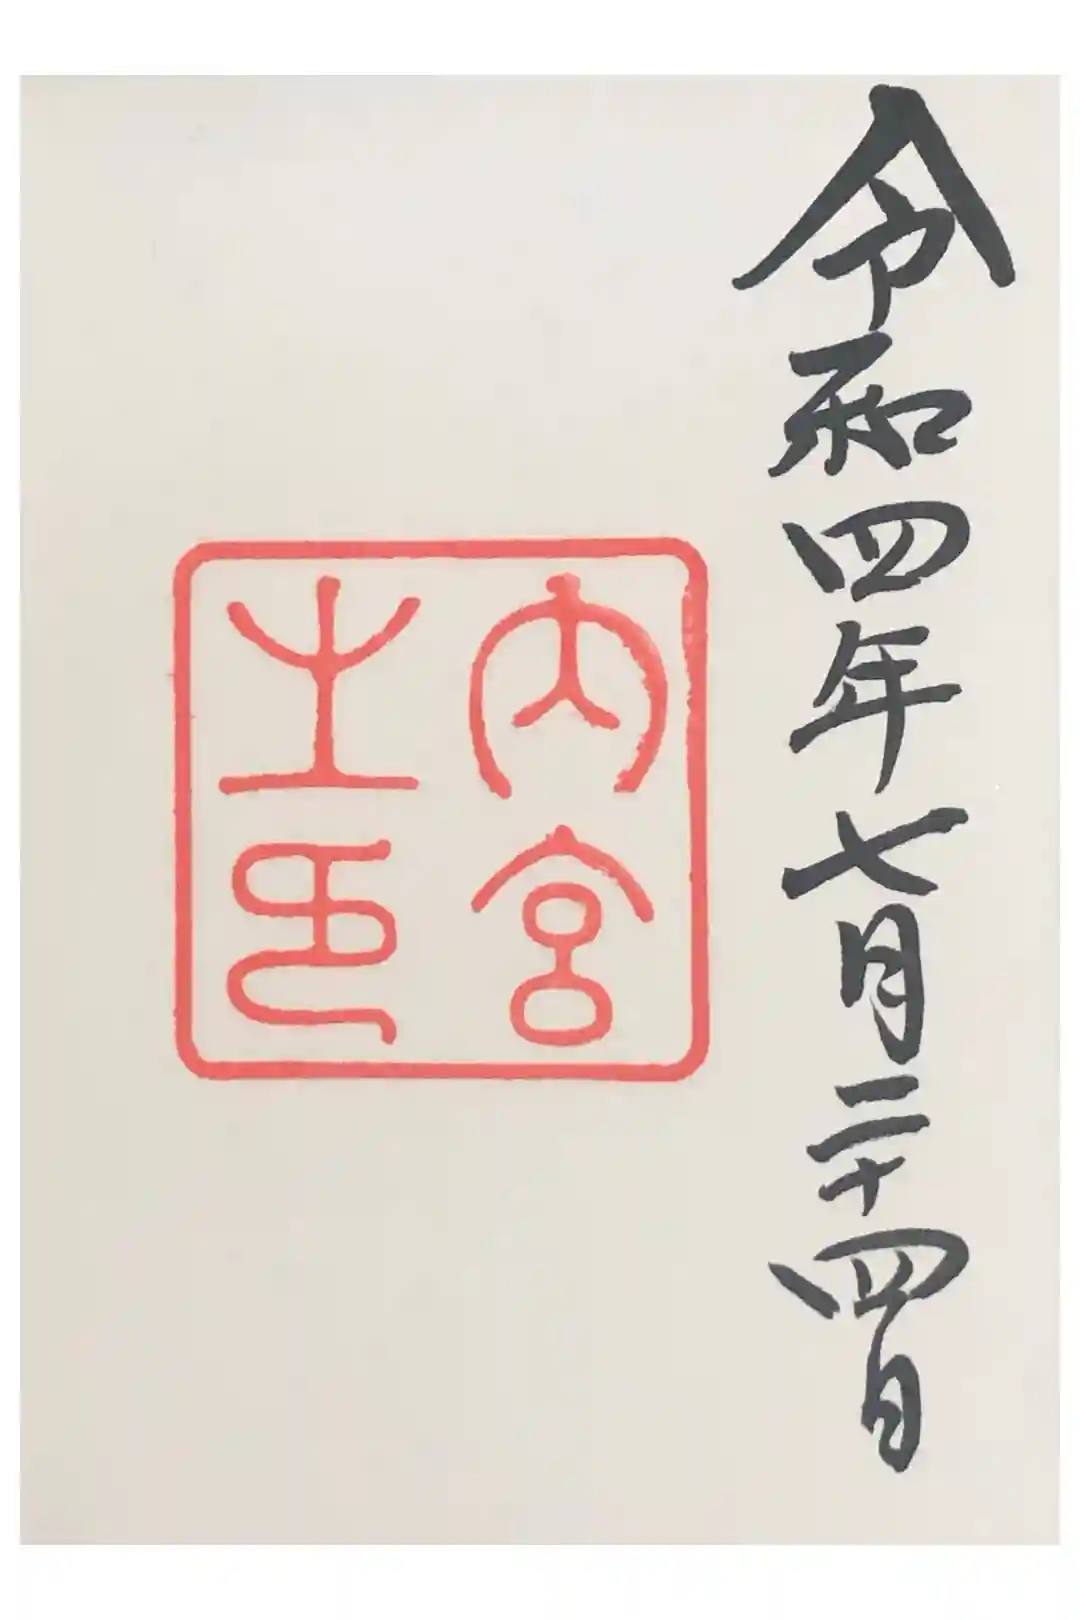 令和四年七月二十四日
内宮
之印